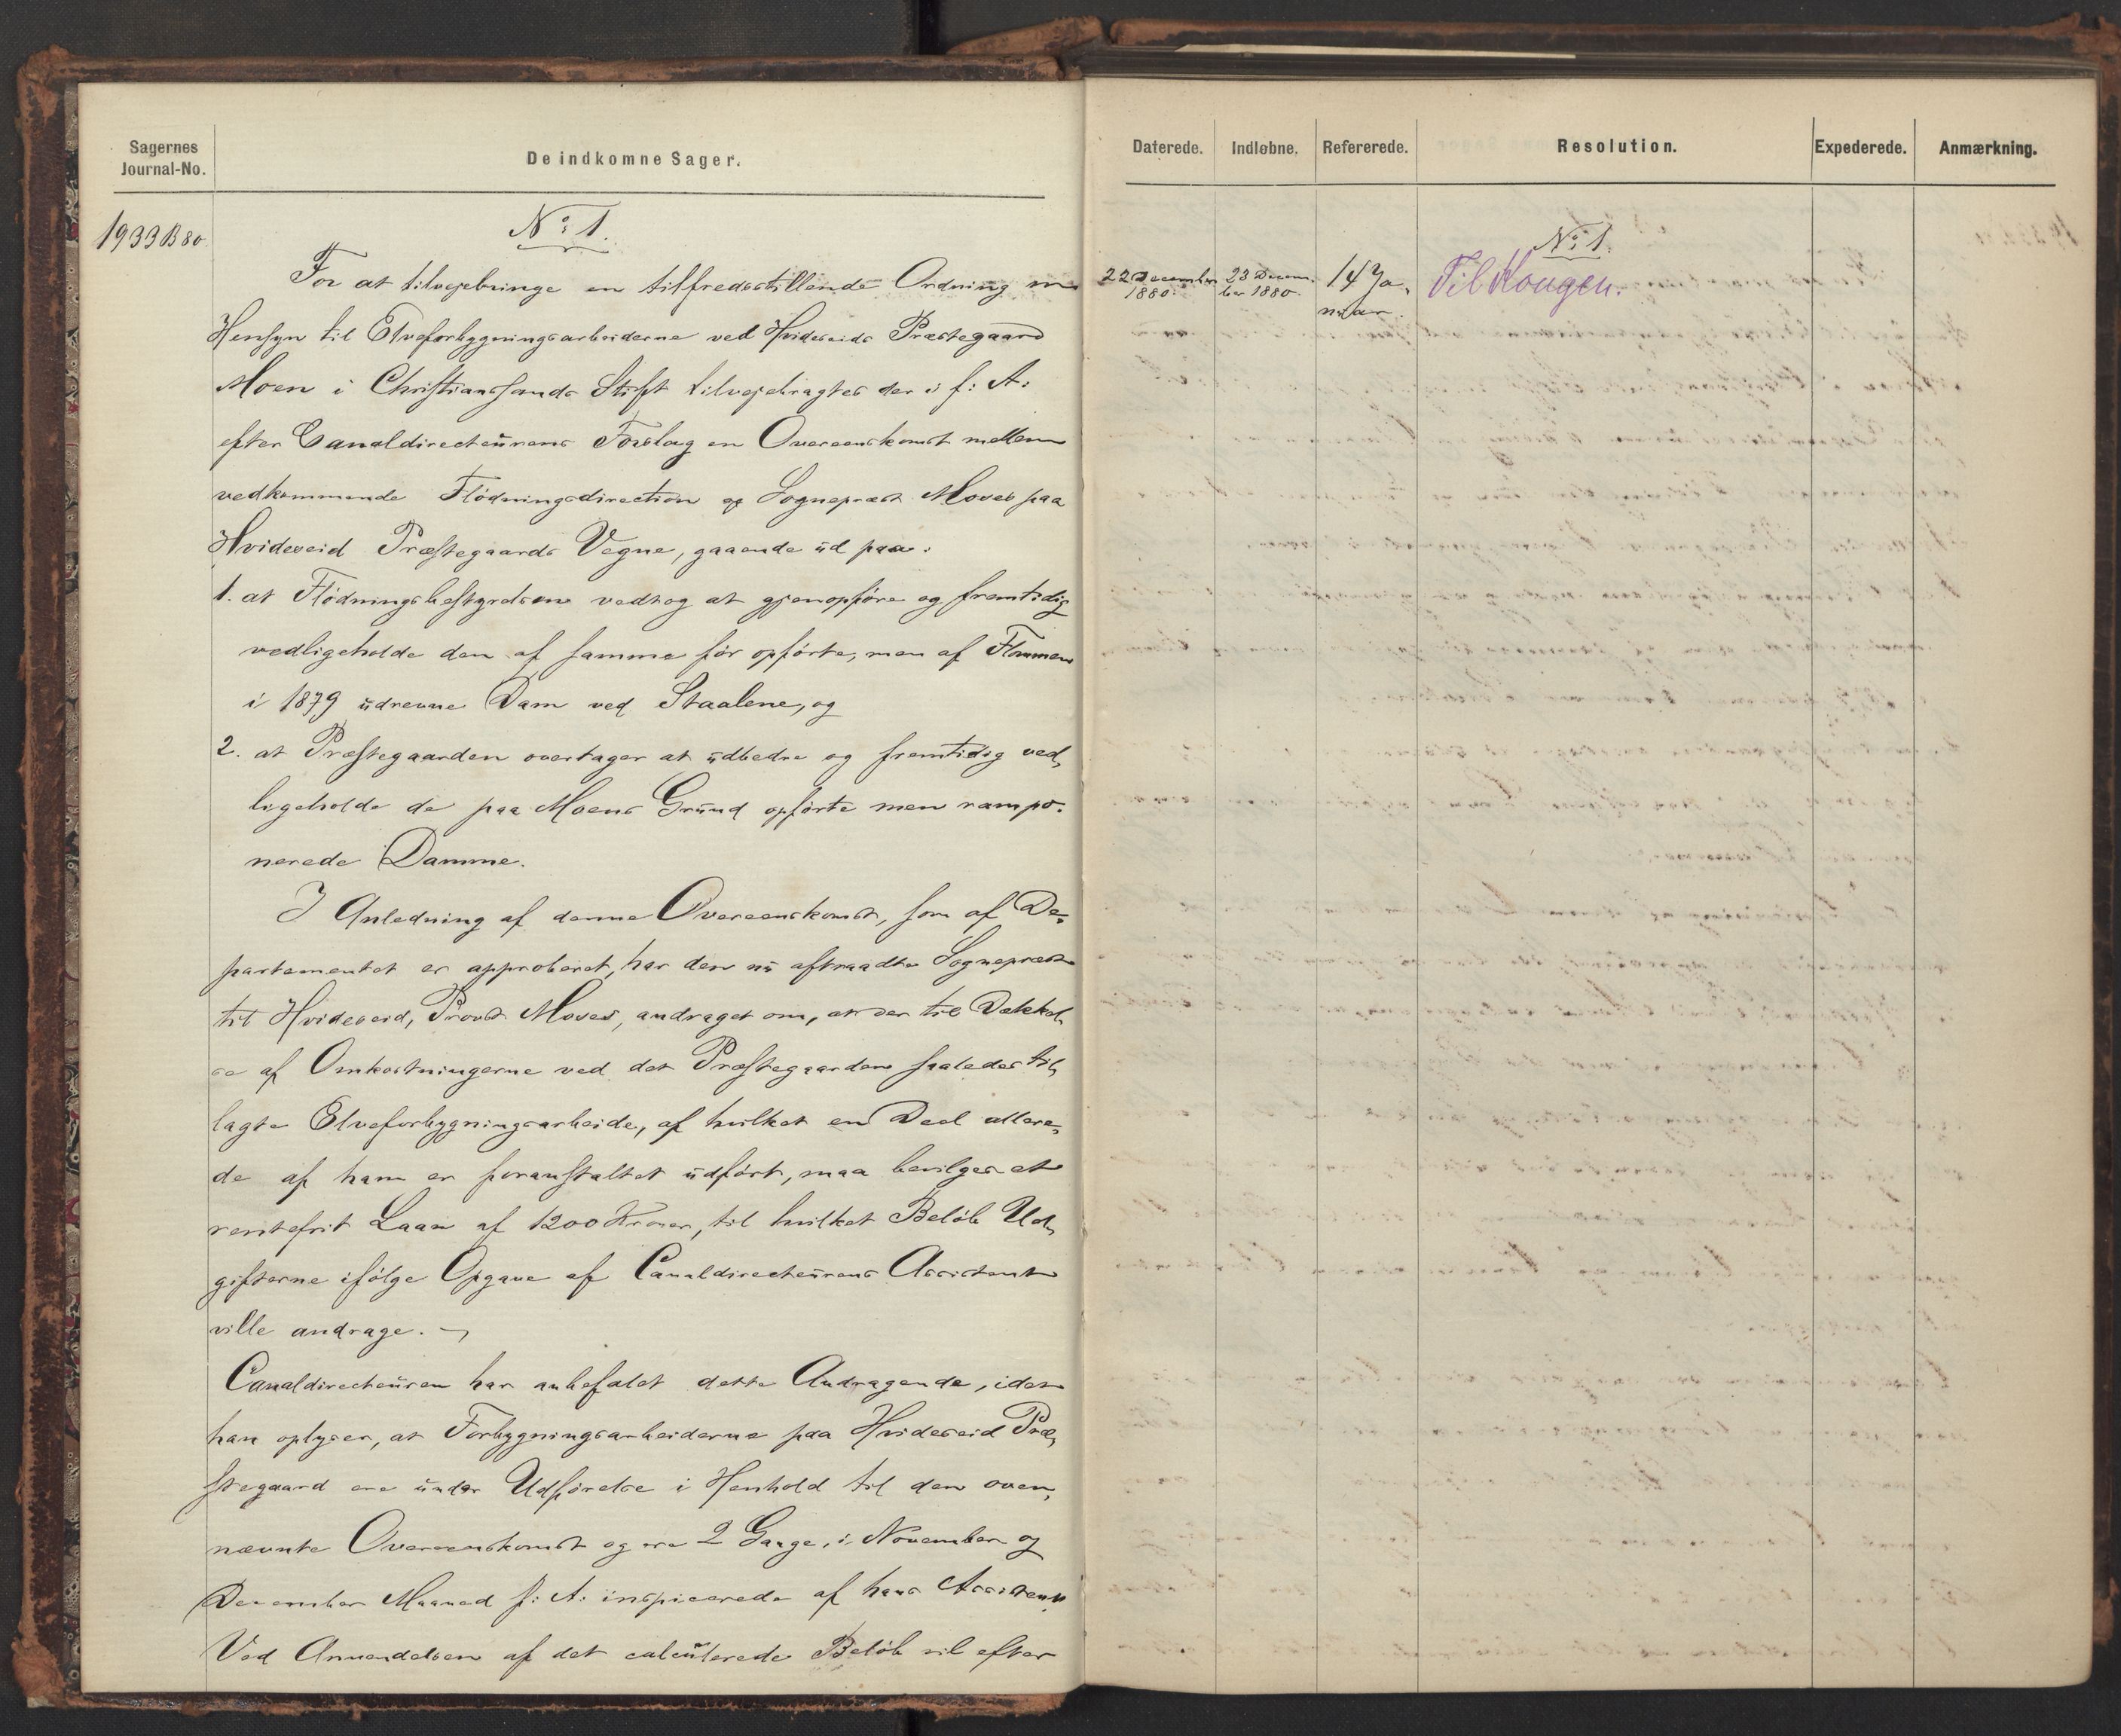 Sagernes
Journal-No.
De indkomne Sager.
1933 B 80.
No 1.
For at tilvejebringe en tilfredsstillende Ordning m
Hensyn til Elveforbygningsarbeiderne ved Hvideseids Præstegaard
Moen i Christianssands Stift tilvejebragtes der i f: A:
efter Canaldirecteurens Forslag en Overeenskomst mellem
vedkommende Flödningsdirection og Sognepræst Moses paa
Hvideseid Præstegaards Vegne, gaaende ud paa:
1. at Flödningsbestyrelsen vedtog at gjenopföre og fremtidig
vedligeholde den af samme för opförte, men af Flommen
i 1879 udrevne Dam ved Staalene, og
2. at Præstegaarden overtager at udbedre og fremtidig ved,
ligeholde de paa Moens Grund opförte men rampo-
nerede Damme.
I Anledning af denne Overeenskomst, som af De-
partementet er approberet, har den nu aftraadte Sognepræst
til Hvideseid, Provst Moses, andraget om, at der til Dækkel,
se af Omkostningerne ved det Præstegaarden saaledes til,
lagte Elveforbygningsarbeide, af hvilket en Deel allere,
de af ham er foranstaltet udfört, maa bevilges et
rentefrit Laan af 1200 Kroner, til hvilket Belöb Ud,
gifterne ifölge Opgave af Canaldirecteurens Assistent
ville andrage. –
Canaldirecteuren har anbefalet dette Andragende, idet
han oplyser, at Forbygningsarbeiderne paa Hvideseid Præ,
stegaard ere under Udförelse i Henhold til den oven,
nævnte Overeenskomst og ere 2 Gange, i November og
December Maaned f: A: inspicerede af hans Assistent.
Ved Anvendelsen af det calculerede Belöb vil efter
Daterede.
Indløbne.
Refererede.
Resolution.
Expederede.
Anmærkning.
No 1.
22 December
1880.
23 Decem-
ber 1880.
14 Ja,
nuar.
Til Kongen.